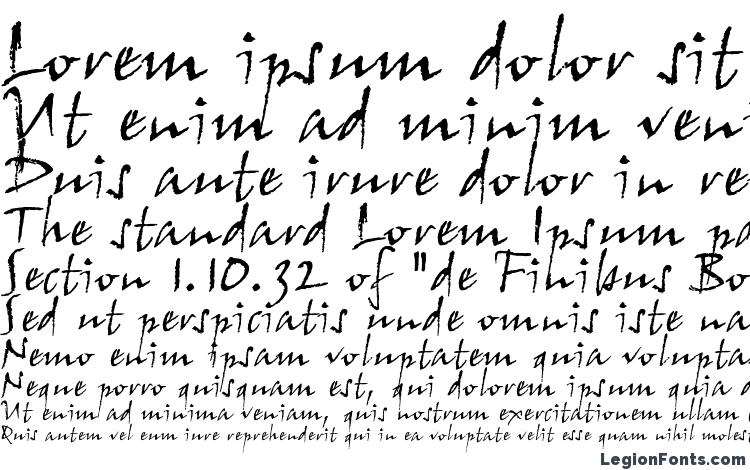 Lorem ipsum dolor sit
Ut enim ad minim veni
Duis aute irure dolor in re
The standard Lorem Ipsum pa
Section 1.10.32 of "de Finibus Bo
Sed ut perspiciatis unde omnis iste na
Nemo enim ipsam voluptatem quia volupta
Neque porro quisquam est, qui dolorem ipsum quia d
Ut enim ad minima veniam, quis nostrum exercitationem ullam c
Quis autem vel eum iure reprehenderit qui in ea voluptate velit esse quam nihil molesti
LegionFonts.com